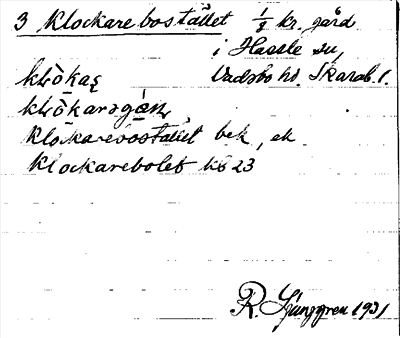 3 Klockarebostället 1/8 kr. gård
i Hassle sn,
Vadsbo hd. Skarab. l.
klȯ̀kaṣ
klȯ̀karəgáṇ
Klockarebostället bek, ek
Klockarebolet kb 23
R. Ljunggren 1931